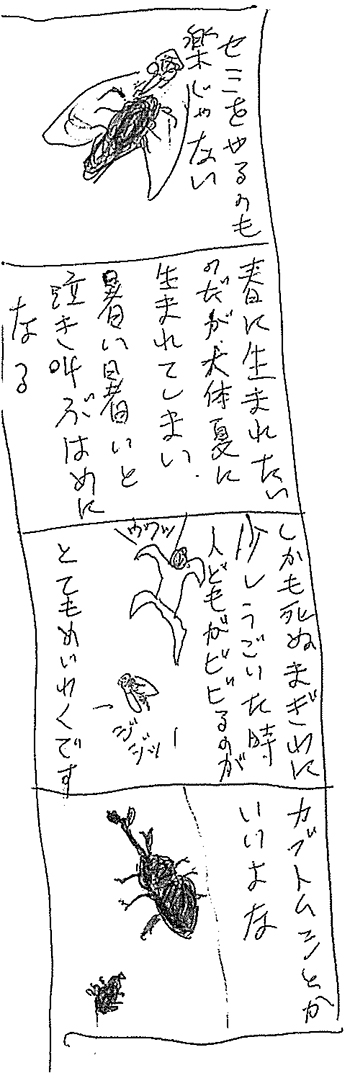 セミをやるのも
楽じゃない
春に生まれたい
のだが、大体夏に
生まれてしまい、
暑い暑いと
泣き叫ぶはめに
なる
しかも死ぬまぎわに
少しうごいた時
人どもがビビるのが
ウワッ
ジジジッー
とてもめいわくです
カブトムシとか
いいよな